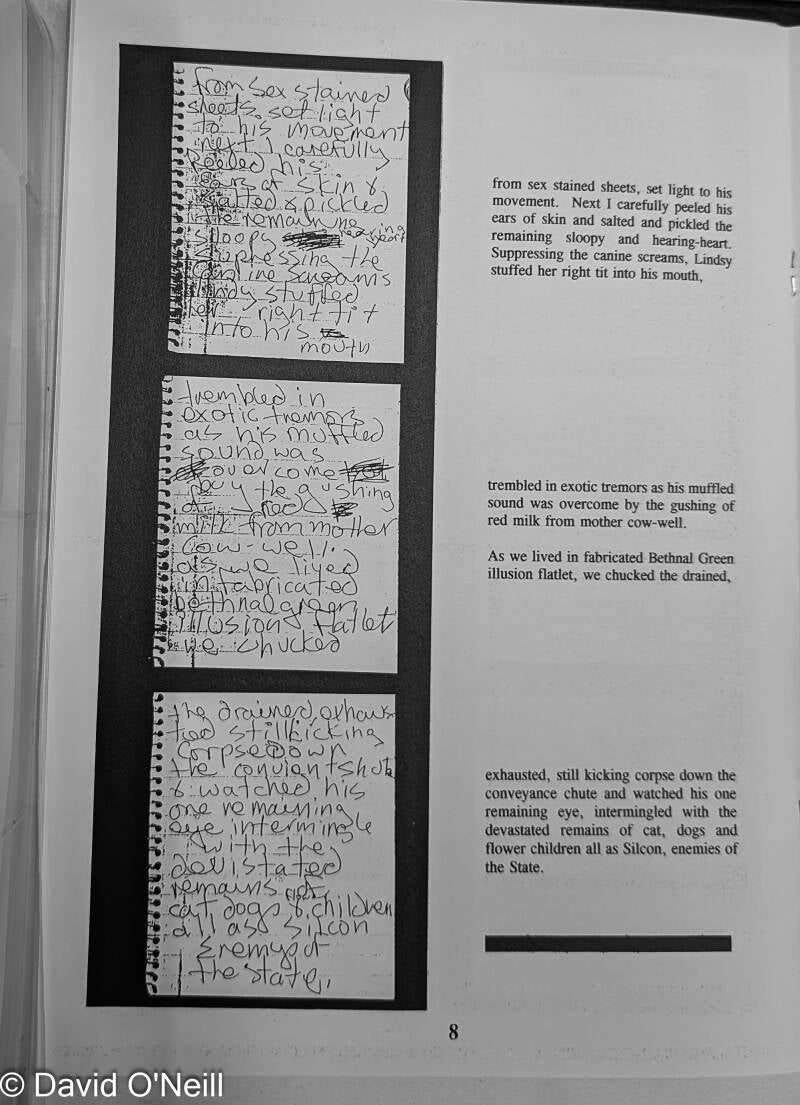 from sex stained
sheets, set light
to his movement
next I carefully
peeled his
ears of skin &
salted & pickled
the remaining
sloopy hearing
heart
supressing the
canine screams
lindy stuffed
her right tit
into his
mouth
trembled in
exotic tremors
as his muffled
sound was
over come
buy the gushing
of red
milk from mother
cow-well.
as we lived
in fabricated
bethnal green
illusion flatlet
we chucked
the drained, exhaus
ted still kicking
corpse down
the
& watched his
one remaining
eye intermingle
with the
devistated
remains of
cat, dogs & children
all as silcon
Enemy of
the state,
from sex stained sheets, set light to his
movement. Next I carefully peeled his
ears of skin and salted and pickled the
remaining sloopy and hearing-heart.
Suppressing the canine screams, Lindsy
stuffed her right tit into his mouth,
trembled in exotic tremors as his muffled
sound was overcome by the gushing of
red milk from mother cow-well.
As we lived in fabricated Bethnal Green
illusion flatlet, we chucked the drained,
exhausted, still kicking corpse down the
conveyance chute and watched his one
remaining eye, intermingled with the
devastated remains of cat, dogs and
flower children all as Silcon, enemies of
the State.
8
© David O'Neill